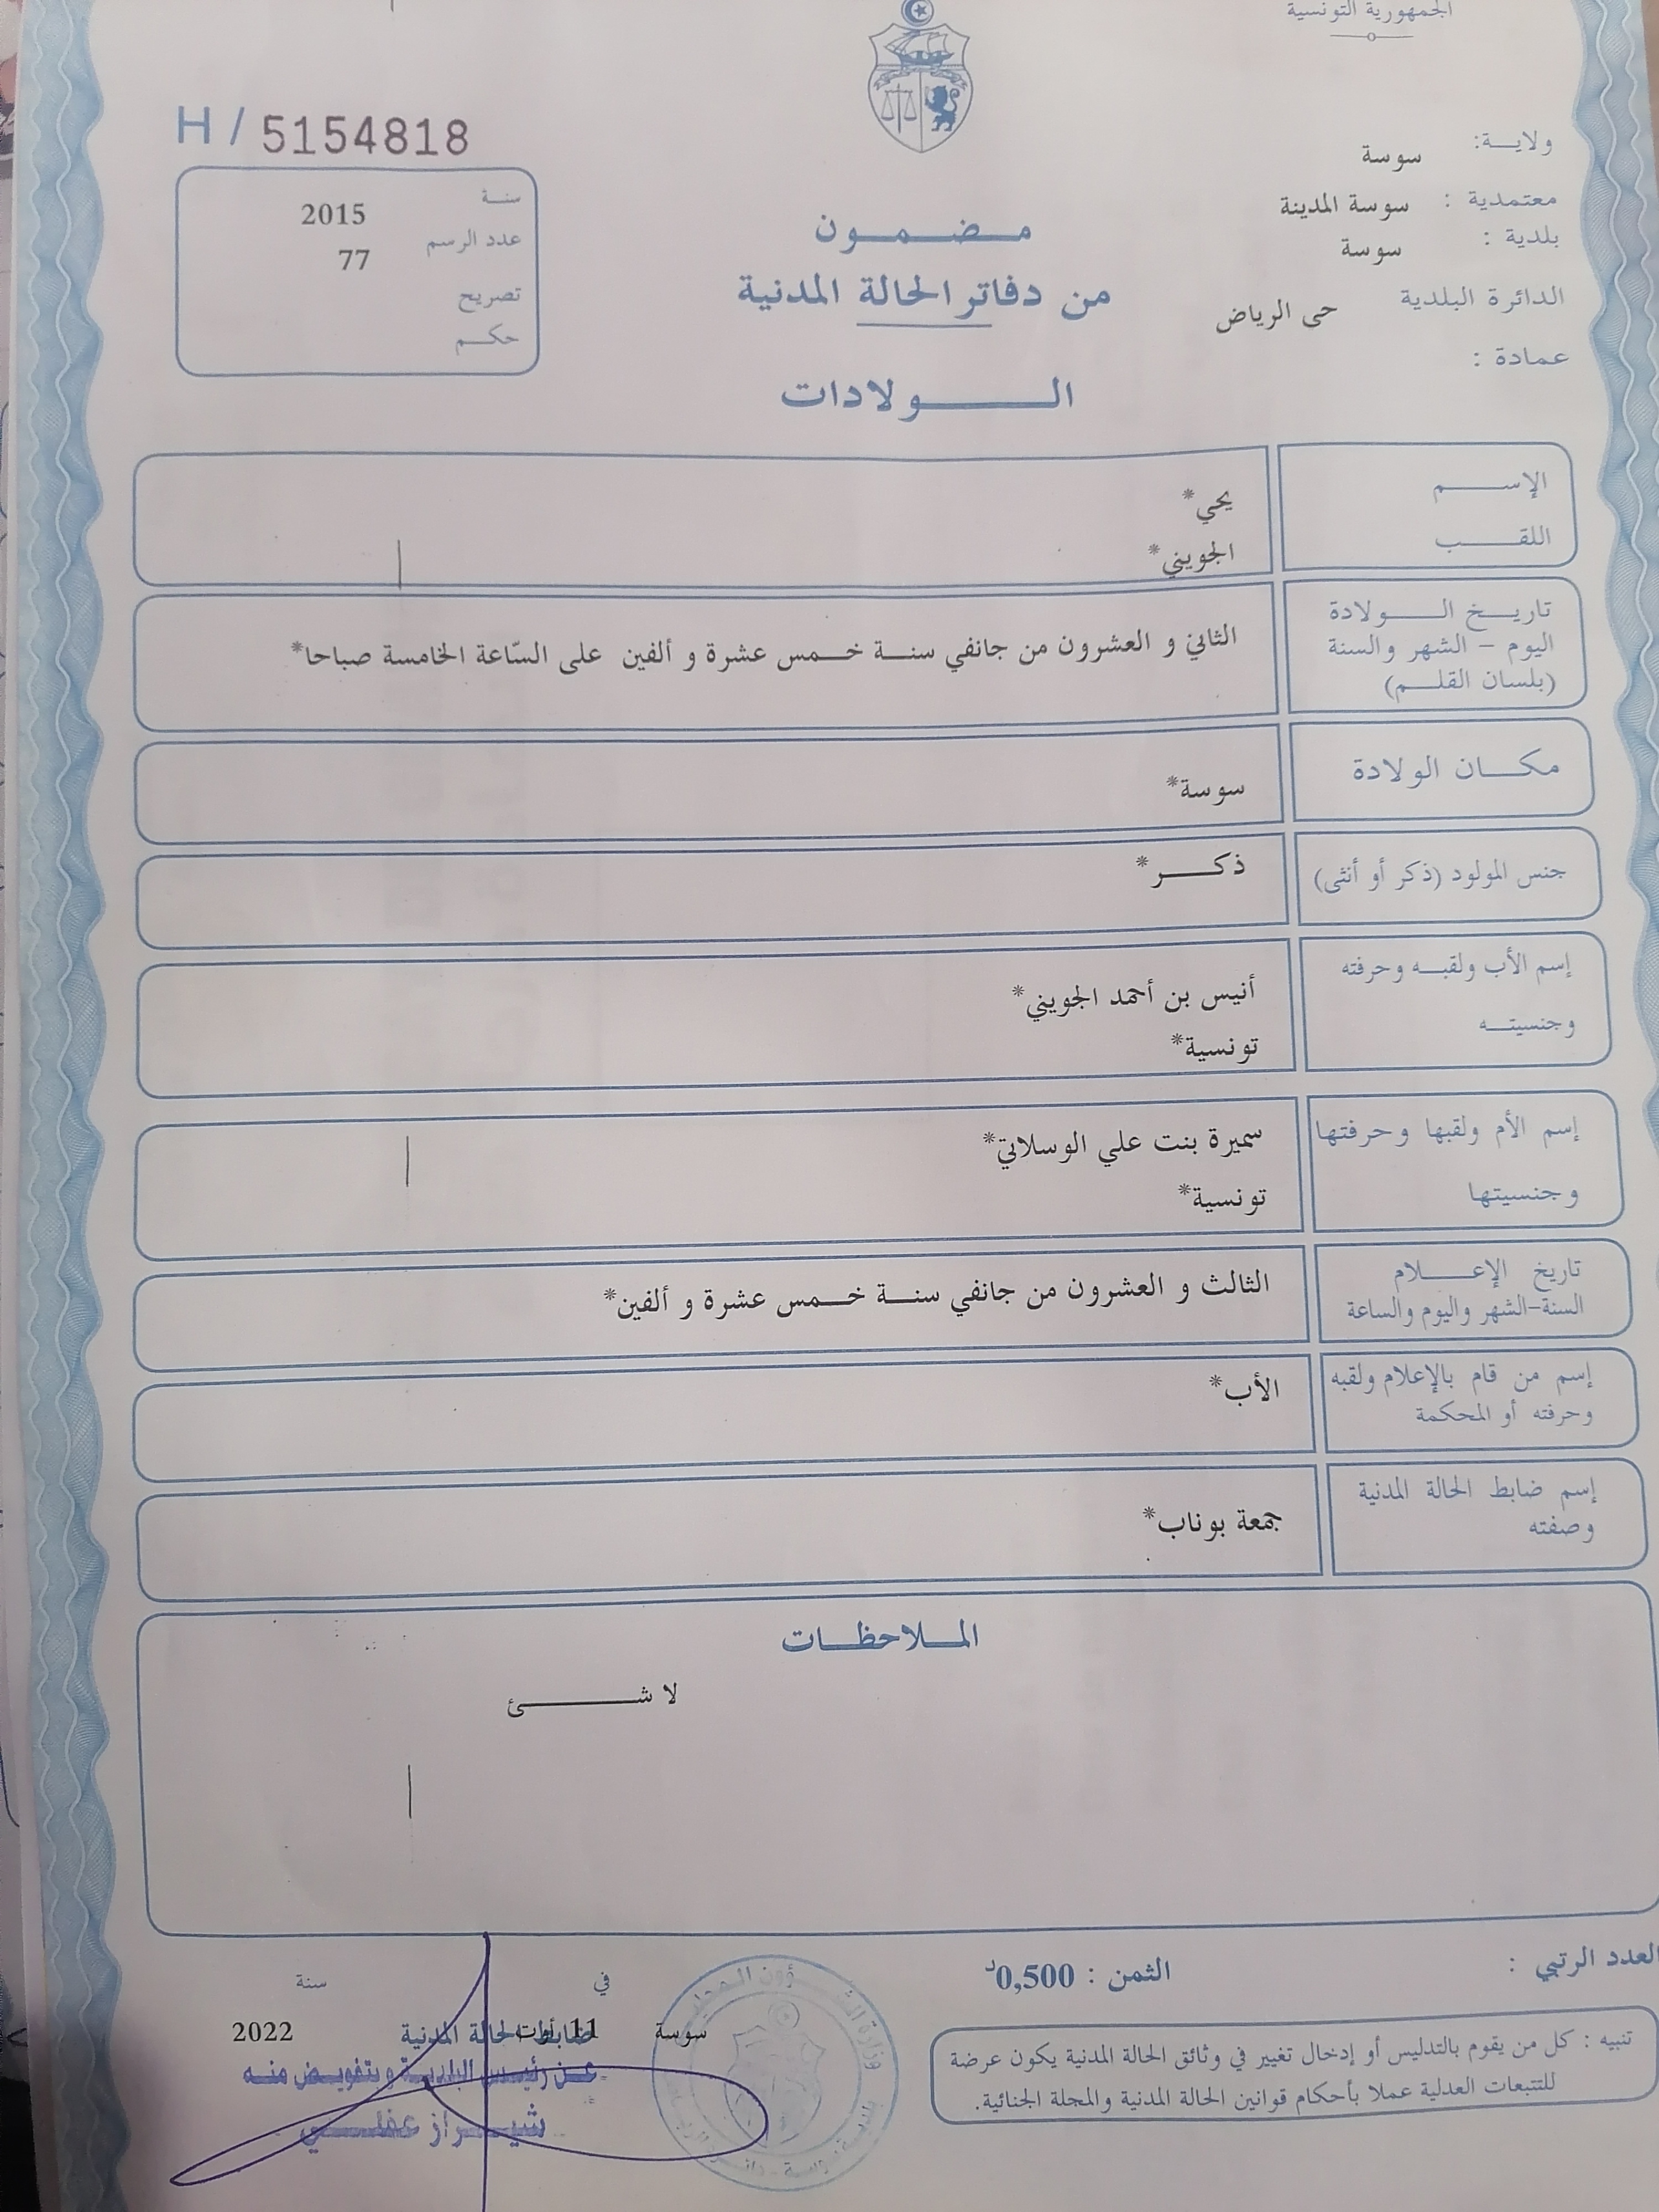 الجمهورية التونسية
ولايــة: سوسة
معتمدية : سوسة المدينة
بلدية : سوسة
الدائرة البلدية حى الرياض
عمادة :
H / 5154818
سنة 2015
عدد الرسم 77
تصريح
حكم
مضمون
من دفاتر الحالة المدنية
الولادات
الإسم يحي*
اللقب الجويني*
تاريخ الولادة
اليوم – الشهر والسنة
(بلسان القلم)
الثاني و العشرون من جانفي سنة خمس عشرة و ألفين على السّاعة الخامسة صباحا*
مكان الولادة سوسة*
جنس المولود (ذكر أو أنثى) ذكر*
إسم الأب ولقبه وحرفته أنيس بن أحمد الجويني*
وجنسيته تونسية*
إسم الأم ولقبها وحرفتها سميرة بنت علي الوسلاتي*
وجنسيتها تونسية*
تاريخ الإعلام
السنة-الشهر واليوم والساعة
الثالث و العشرون من جانفي سنة خمس عشرة و ألفين*
إسم من قام بالإعلام ولقبه
وحرفته أو المحكمة
الأب*
إسم ضابط الحالة المدنية
وصفته
جمعة بوناب*
الملاحظات
لا شئ
العدد الرتبي :
الثمن : 0,500د
تنبيه : كل من يقوم بالتدليس أو إدخال تغيير في وثائق الحالة المدنية يكون عرضة
للتتبعات العدلية عملا بأحكام قوانين الحالة المدنية والمجلة الجنائية.
في سنة
سوسة 11 أوت 2022
ضابط الحالة المدنية
عن رئيس البلدية وبتفويض منه